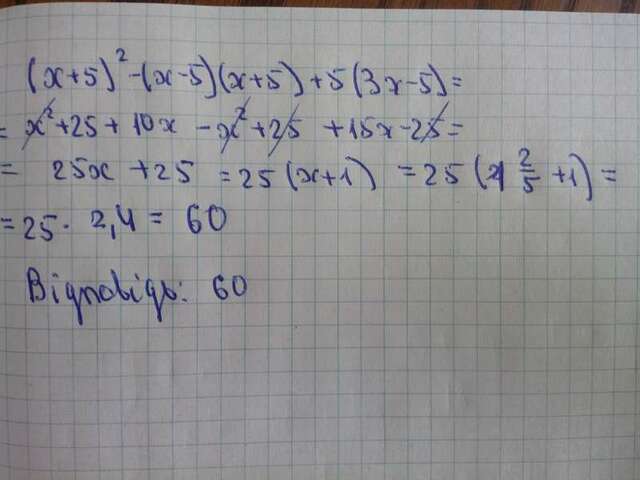 (x+5)² -(x-5)(x+5)+5(3x-5)=
= x²+25+10x -x²+25 +15x-25=
= 25x +25 =25 (x+1) =25 (1 2/5 +1) =
=25· 2,4 = 60
Відповідь: 60